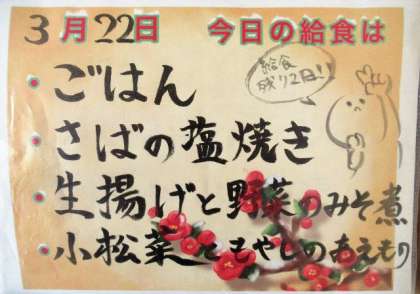 3月22日 今日の給食は
給食
残り2日!!
・ごはん
・さばの塩焼き
・生揚げと野菜のみそ煮
・小松菜ともやしのあえもの